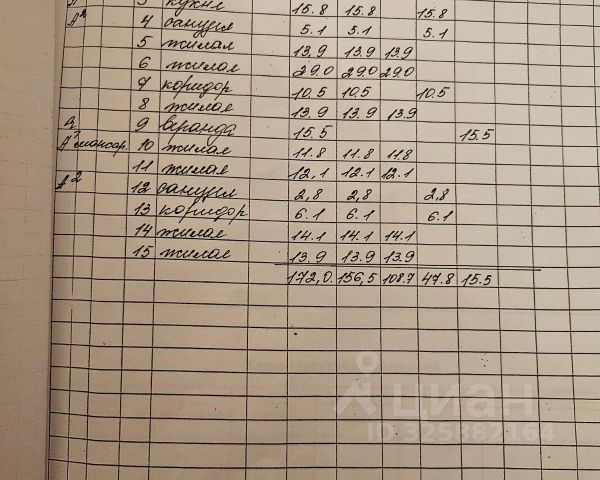 3 кухне 15.8 15.8 15.8
А² 4 санузел 5.1 5.1 5.1
5 жилая 13,9 13.9 13,9
6 жилая 29.0 29.0 29.0
7 коридор 10,5 10,5 10,5
8 жилая 13.9 13.9 13.9
9 веранда 15.5 15.5
мансар. 10 жилая 11.8 11.8 11.8
11 жилая 12,1 12.1 12.1
А² 12 санузел 2,8 2,8 2,8
13 коридор 6.1 6.1 6.1
14 жилая 14.1 14.1 14.1
15 жилая 13.9 13.9 13.9
172,0. 156,5 108.7 47.8 15.5
циан